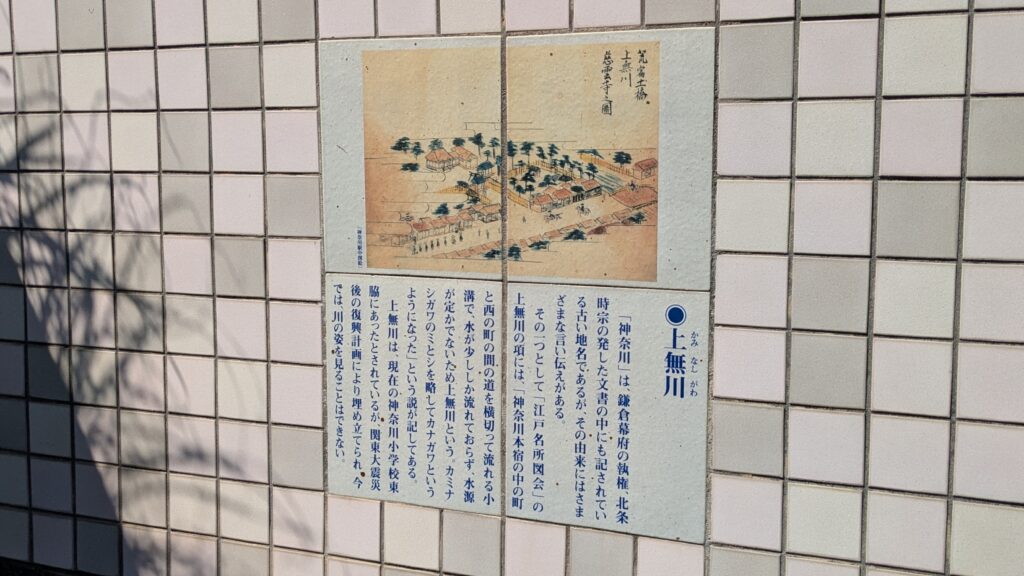 瀧富士橋
上無川
慈雲寺之圖
●上無川
かみなしがわ
「神奈川」は、鎌倉幕府の執権、北条
時宗の発した文書の中にも記されてい
る古い地名であるが、その由来にはさま
ざまな言い伝えがある。
その一つとして「江戸名所図会」の
上無川の項には、「神奈川本宿の中の町
と西の町の間の道を横切って流れる小
溝で、水が少ししか流れておらず、水源
が定かでないため上無川という。カミナ
シガワのミとシを略してカナガワという
ようになった」という説が記してある。
上無川は、現在の神奈川小学校東
脇にあったとされているが、関東大震災
後の復興計画により埋め立てられ、今
では、川の姿を見ることはできない。